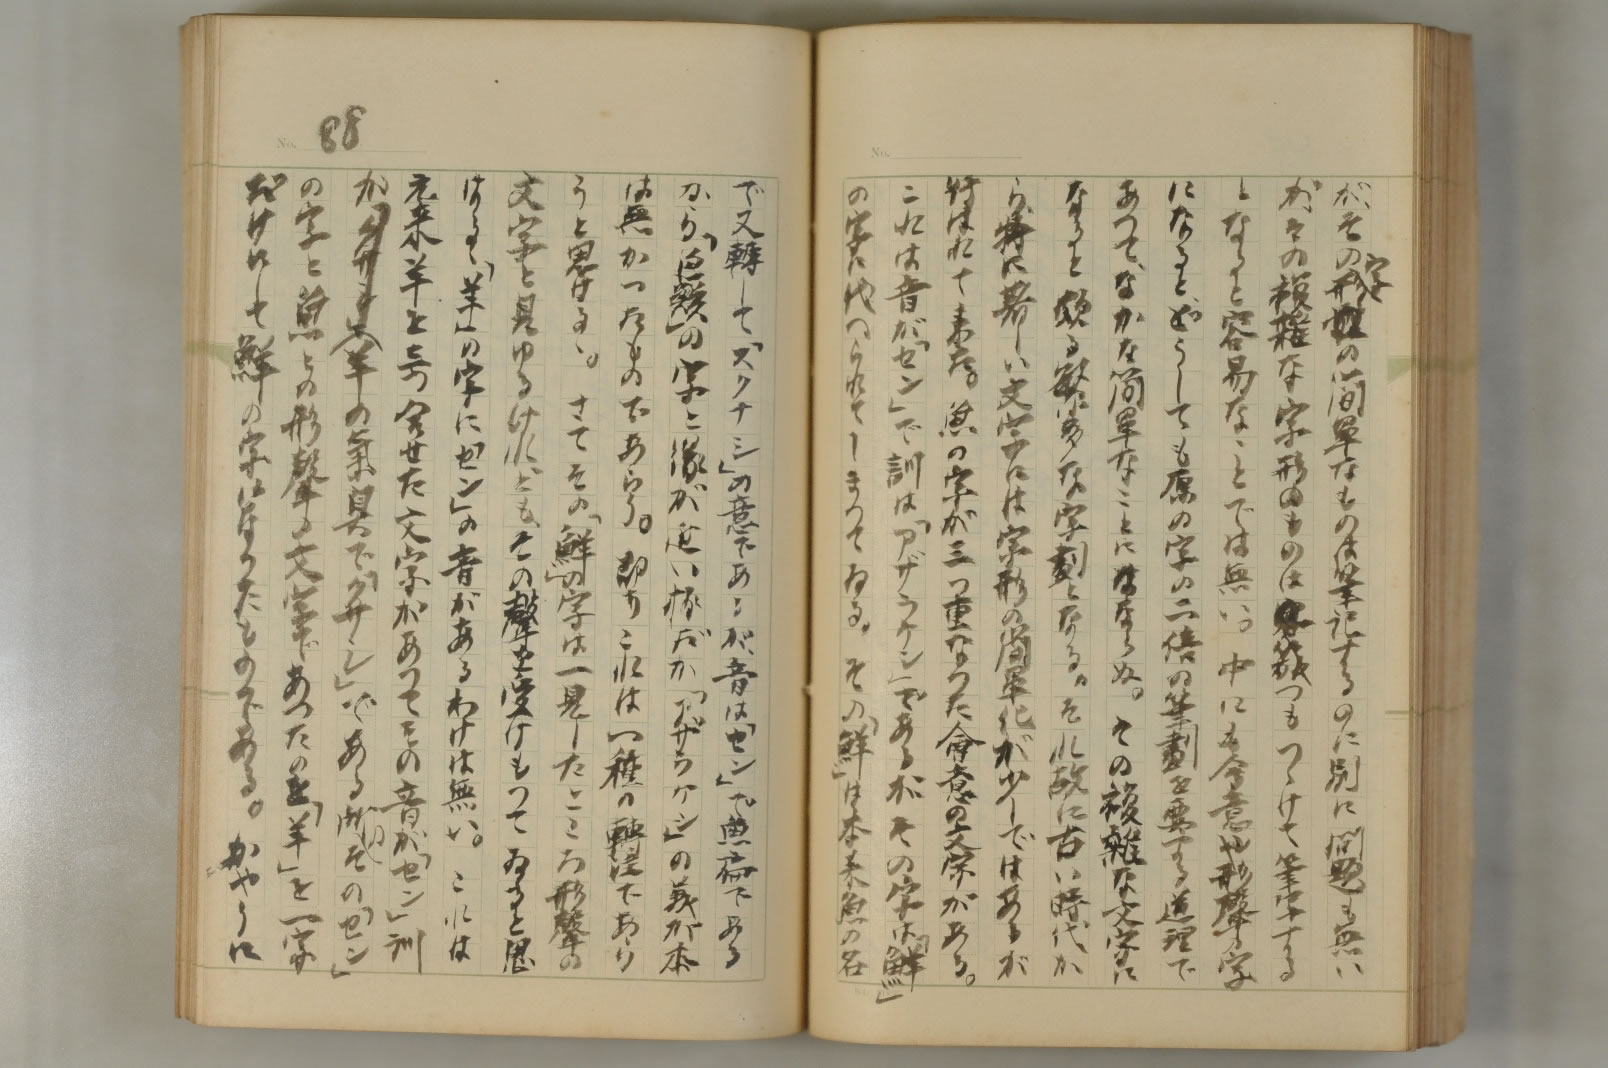 が、その字形の簡単なものは筆記するのに別に問題も無い
が、その複雑な字形のものは幾つもつゞけて筆字する
となると容易なことでは無い。中にも會意や形聲の字
になるとどうしても原の字の二倍の筆劃を要する道理で
あつて、なかな簡単なことにはならぬ。その複雑な文字に
なると頗る繁多な字劃となる。それ故に古い時代か
ら特に著しい文字には字形の簡単化が少しではあるが
行はれて来た。魚の字が三つ重なつた會意の文字がある。
これは音が「セン」で訓は「アザラケシ」であるがその字は「鮮」
の字に代へられてしまつてゐる。その「鮮」は本来魚の名
No.
88
No.
で又轉して「スクナシ」の意であるが、音は「セン」で魚扁である
から「鱻」の字と縁が近い様だが「アザラケシ」の義が本
は無かつたものであらう。即ちこれは一種の轉注であり
うと思はるゝ。さてその「鮮」の字は一見したところ形聲の
文字と見ゆるけれども、その聲を受けもつてゐると思
はるゝ「羊」の字に「セン」の音があるわけは無い。これは
元来羊を三つ合せた文字があつてその音が「セン」訓
が羊の氣臭で「クサシ」である所、その「セン」
の字と魚との形聲の文字であつたのを「羊」を一字
だけにして鮮の字になつたものである。かやうに